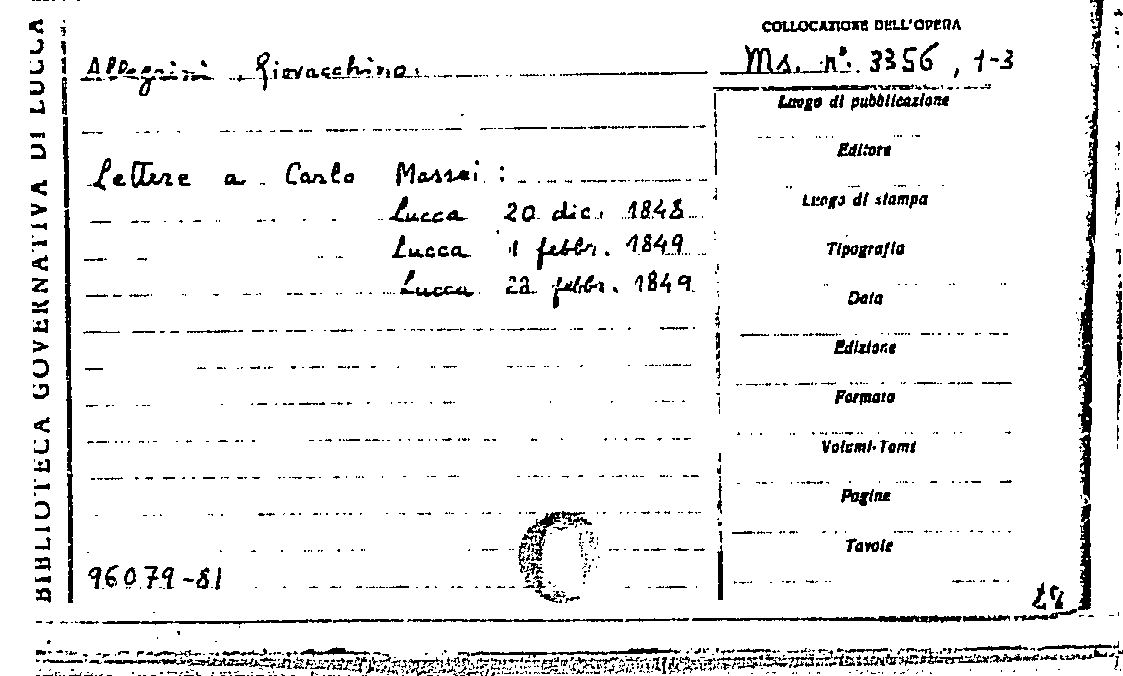 BIBLIOTECA GOVERNATIVA DI LUCCA
COLLOCAZIONE DELL'OPERA
Allegrini, Giovacchino.
Ms. n°. 3356, 1-3
Lettere a Carlo Massei:
Lucca 20 dic. 1848
Lucca 1 febbr. 1849
Lucca 22 febbr. 1849
Luogo di pubblicazione
Editore
Luogo di stampa
Tipografia
Data
Edizione
Formato
Volumi-Tomi
Pagine
Tavole
96079-81